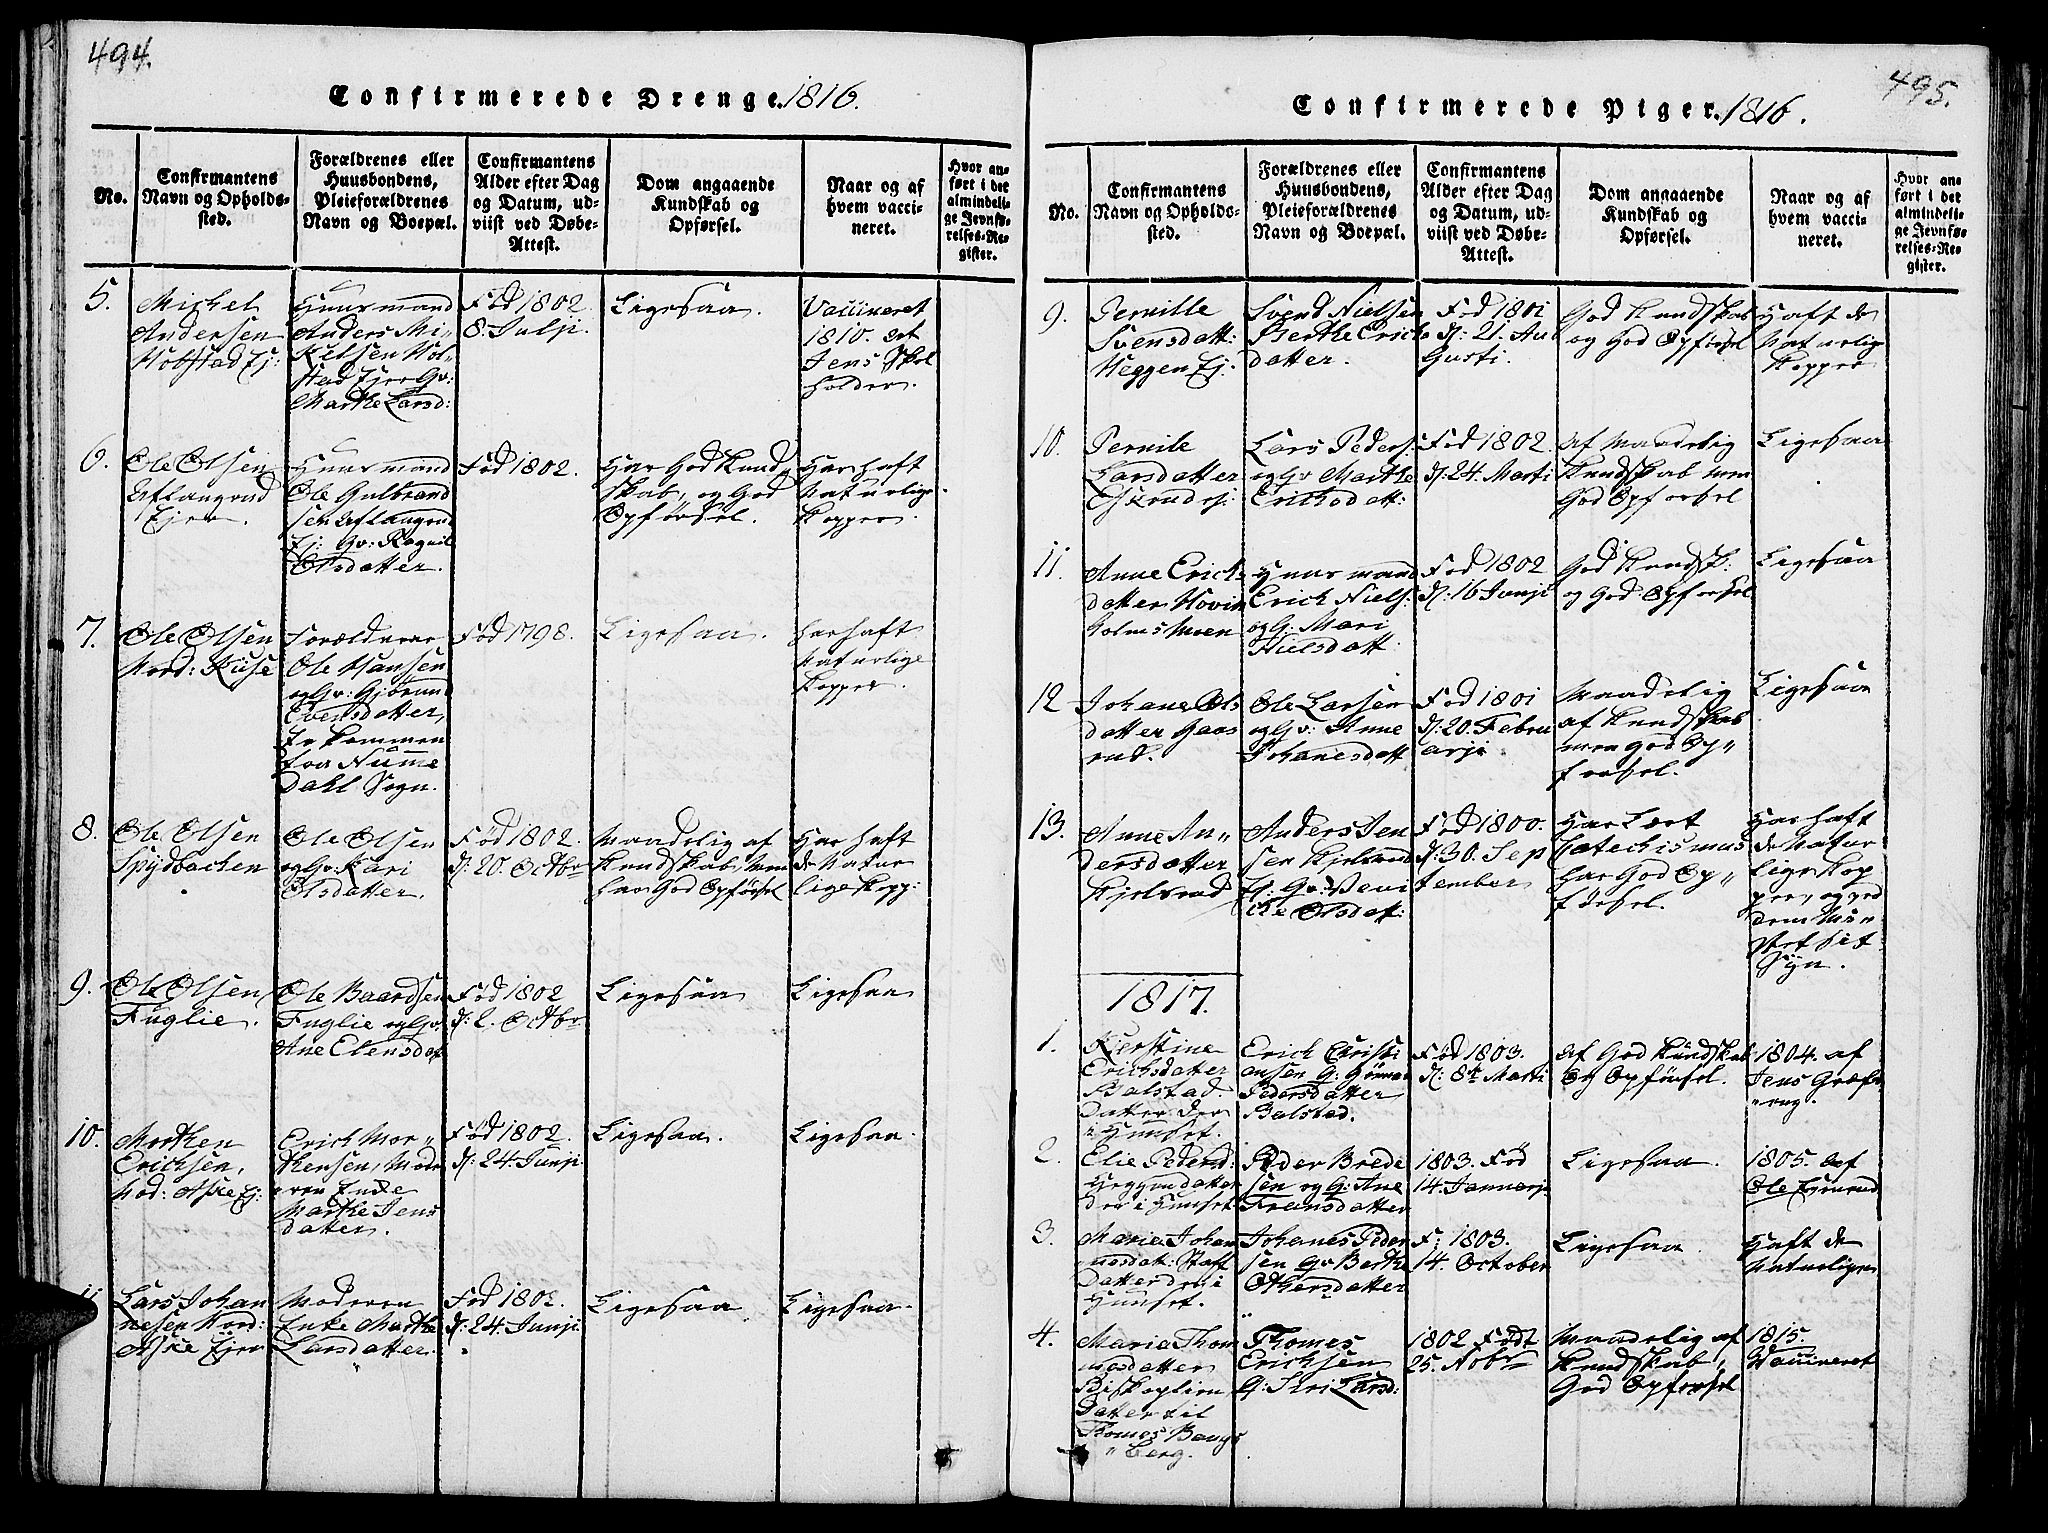 494.
Confirmerede Drenge. 1816.
No.
Confirmantens
Navn og Opholds-
sted.
Forældrenes eller
Huusbondens,
Pleieforældrenes
Navn og Boepæl.
Confirmantens
Alder efter Dag
og Datum, ud-
viist ved Døbe-
Attest.
Dom angaaende
Kundskab og
Opførsel.
Naar og af
hvem vacci-
neret.
Hvor an-
ført i det
almindeli-
ge Jevnfø-
relses-Re-
gister.
5.
Michel
Andersen
Hobstad Ej:
Huusmand
Anders Mi-
kelsen Hol-
stad Ejer Gv:
Marthe Larsd:
Fød 1802.
8. Julji.
Ligesaa.
Vaccineret
1810.
Jens Skol
holder.
6.
Ole Olsen
Aflangrud
Ejer.
Huusmand
Ole Gulbrand
sen Aflangrud
Ej: Gv: Ragnil
Olsdatter.
Fød 1802.
Har God Kund
skab, og God
Opførsel.
Har haft
Naturlige
Kopper.
7.
Ole Olsen
Nord: Kiise
Forældrene
Ole Hansen
og Gv: Gjørund
Evensdatter,
Er kommen
fra Numme
Dahl Sogn.
Fød 1798.
Ligesaa.
har haft
Naturlige
Kopper.
8.
Ole Olsen
Spydbachen
Ole Olsen
og Gv: Kari
Olsdatter.
Fød 1802.
d: 20. Octbr
Maadelig af
Kundskab, Men
har God Opførsel
Har haft
de Natur
lige Kopp:
9.
Ole Olsen
Fuglie.
Ole Baardsen
Fuglie og Gv:
Ane Elensdat
Fød 1802
d: 2. Octbr
Ligesaa
Ligesaa
10.
Morthen
Erichsen,
Nod: Aske Ej:
Erich Mor-
thensen, Mod
eren Enke
Marthe Jens
datter.
Fød 1802.
d: 24. Junji
Ligesaa.
Ligesaa.
11
Lars Johan
nesen Nord:
Aske Ejer
Moderen
Enke Marthe
Larsdatter.
Fød 1802.
d: 24. Junji
Ligesaa
Ligesaa.
495.
Confirmerede Piger. 1816.
No.
Confirmantens
Navn og Opholds-
sted.
Forældrenes eller
Huusbondens,
Pleieforældrenes
Navn og Boepæl.
Confirmantens
Alder efter Dag
og Datum, ud-
viist ved Døbe-
Attest.
Dom angaaende
Kundskab og
Opførsel.
Naar og af
hvem vacci-
neret.
Hvor an-
ført i det
almindeli-
ge Jevnfø-
relses-Re-
gister.
9.
Pernille
Svensdatt:
Heggen Ej:
Svend Nielsen
Berthe Erich
datter.
Fød 1801
d: 21. Au
Gusti.
God Kundskab
og God Opførsel
Haft de
Naturlige
Kopper
10.
Pernile
Larsdatter
Lars Peders:
og Gv Marthe
Erichsdatt:
Fød 1802.
d: 24. Marti
Af Maadelig
Kundskab men
God Opførsel
Ligesaa
11.
Anne Erich
datter Hovin
Holms Moen
Huusmand
Erich Niels:
og G. Mari
Nielsdatt:
Fød 1802
d: 16 Junji
God Kundsk:
og God Opførsel
Ligesaa
12
Johane Ols
datter Gaas
rud.
Ole Larsen
og Gv: Anne
Johanesdatt
Fød 1801
d: 20. Febru
arji.
Maadelig
af Kundskab
men god Op"
førsel.
Ligesaa
13.
Anne An"
dersdatter
Kjelsrud
Anders Jen
sen Kjelsrud
Ej: Gv:
Olsdatt:
Fød 1800.
d: 30. Sep
tember
Har Lært
Catechismus
har God Op"
førsel.
Har haft
de Natur
lige Kop
per, og ved
dem Mi-
stet sit
Syn.
1817.
1.
Kierstine
Erichsdatter
Balstad.
Datter der
i Huuset.
Erich Christi
ansen G:
Pedersdatter
Balstad.
Fød 1803.
d: 8de Marti
Af God Kundskab
Og Opførsel.
1804. af
Jens Græfs
"eng.
2.
Elie Pedersd:
Heggen datter
der i Huuset
Peder Brede
sen og G: Ane
Fransdatter
1803. Fød
14. Januarji
Ligesaa.
1805. Af
Ole
3.
Maria Johan
nesdat: Staff
Datter der i
Huuset.
Johanes Peder
sen Gv Berthe
Othersdatter
F: 1803.
14. October
Ligesaa.
Haft de
Naturlige
4.
Maria Thom
masdatter
Biskoplien
Datter til
Thomes Bangs
"berg.
Thomes
Erichsen
G: Siri Larsd:
1802 Født
25. Nobr
Maadelig af
Kundskab,
God Opførsel
1815.
Vaccineret